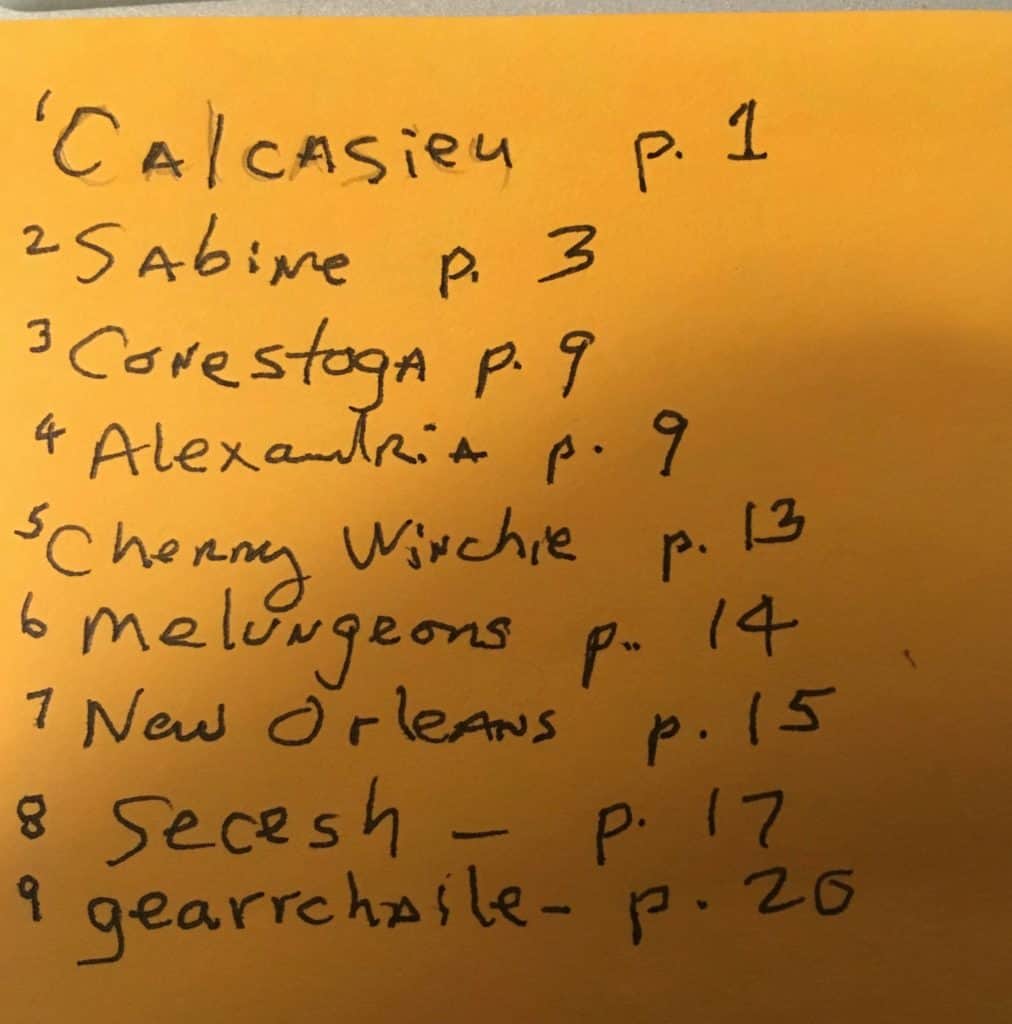 1 Calcasieu p. 1
2 Sabine p. 3
3 Conestoga p. 9
4 Alexandria p. 9
5 Cherry Winchie p. 13
6 Melungeons p.. 14
7 New Orleans p. 15
8 Secesh – p. 17
9 gearrchaile – p. 20